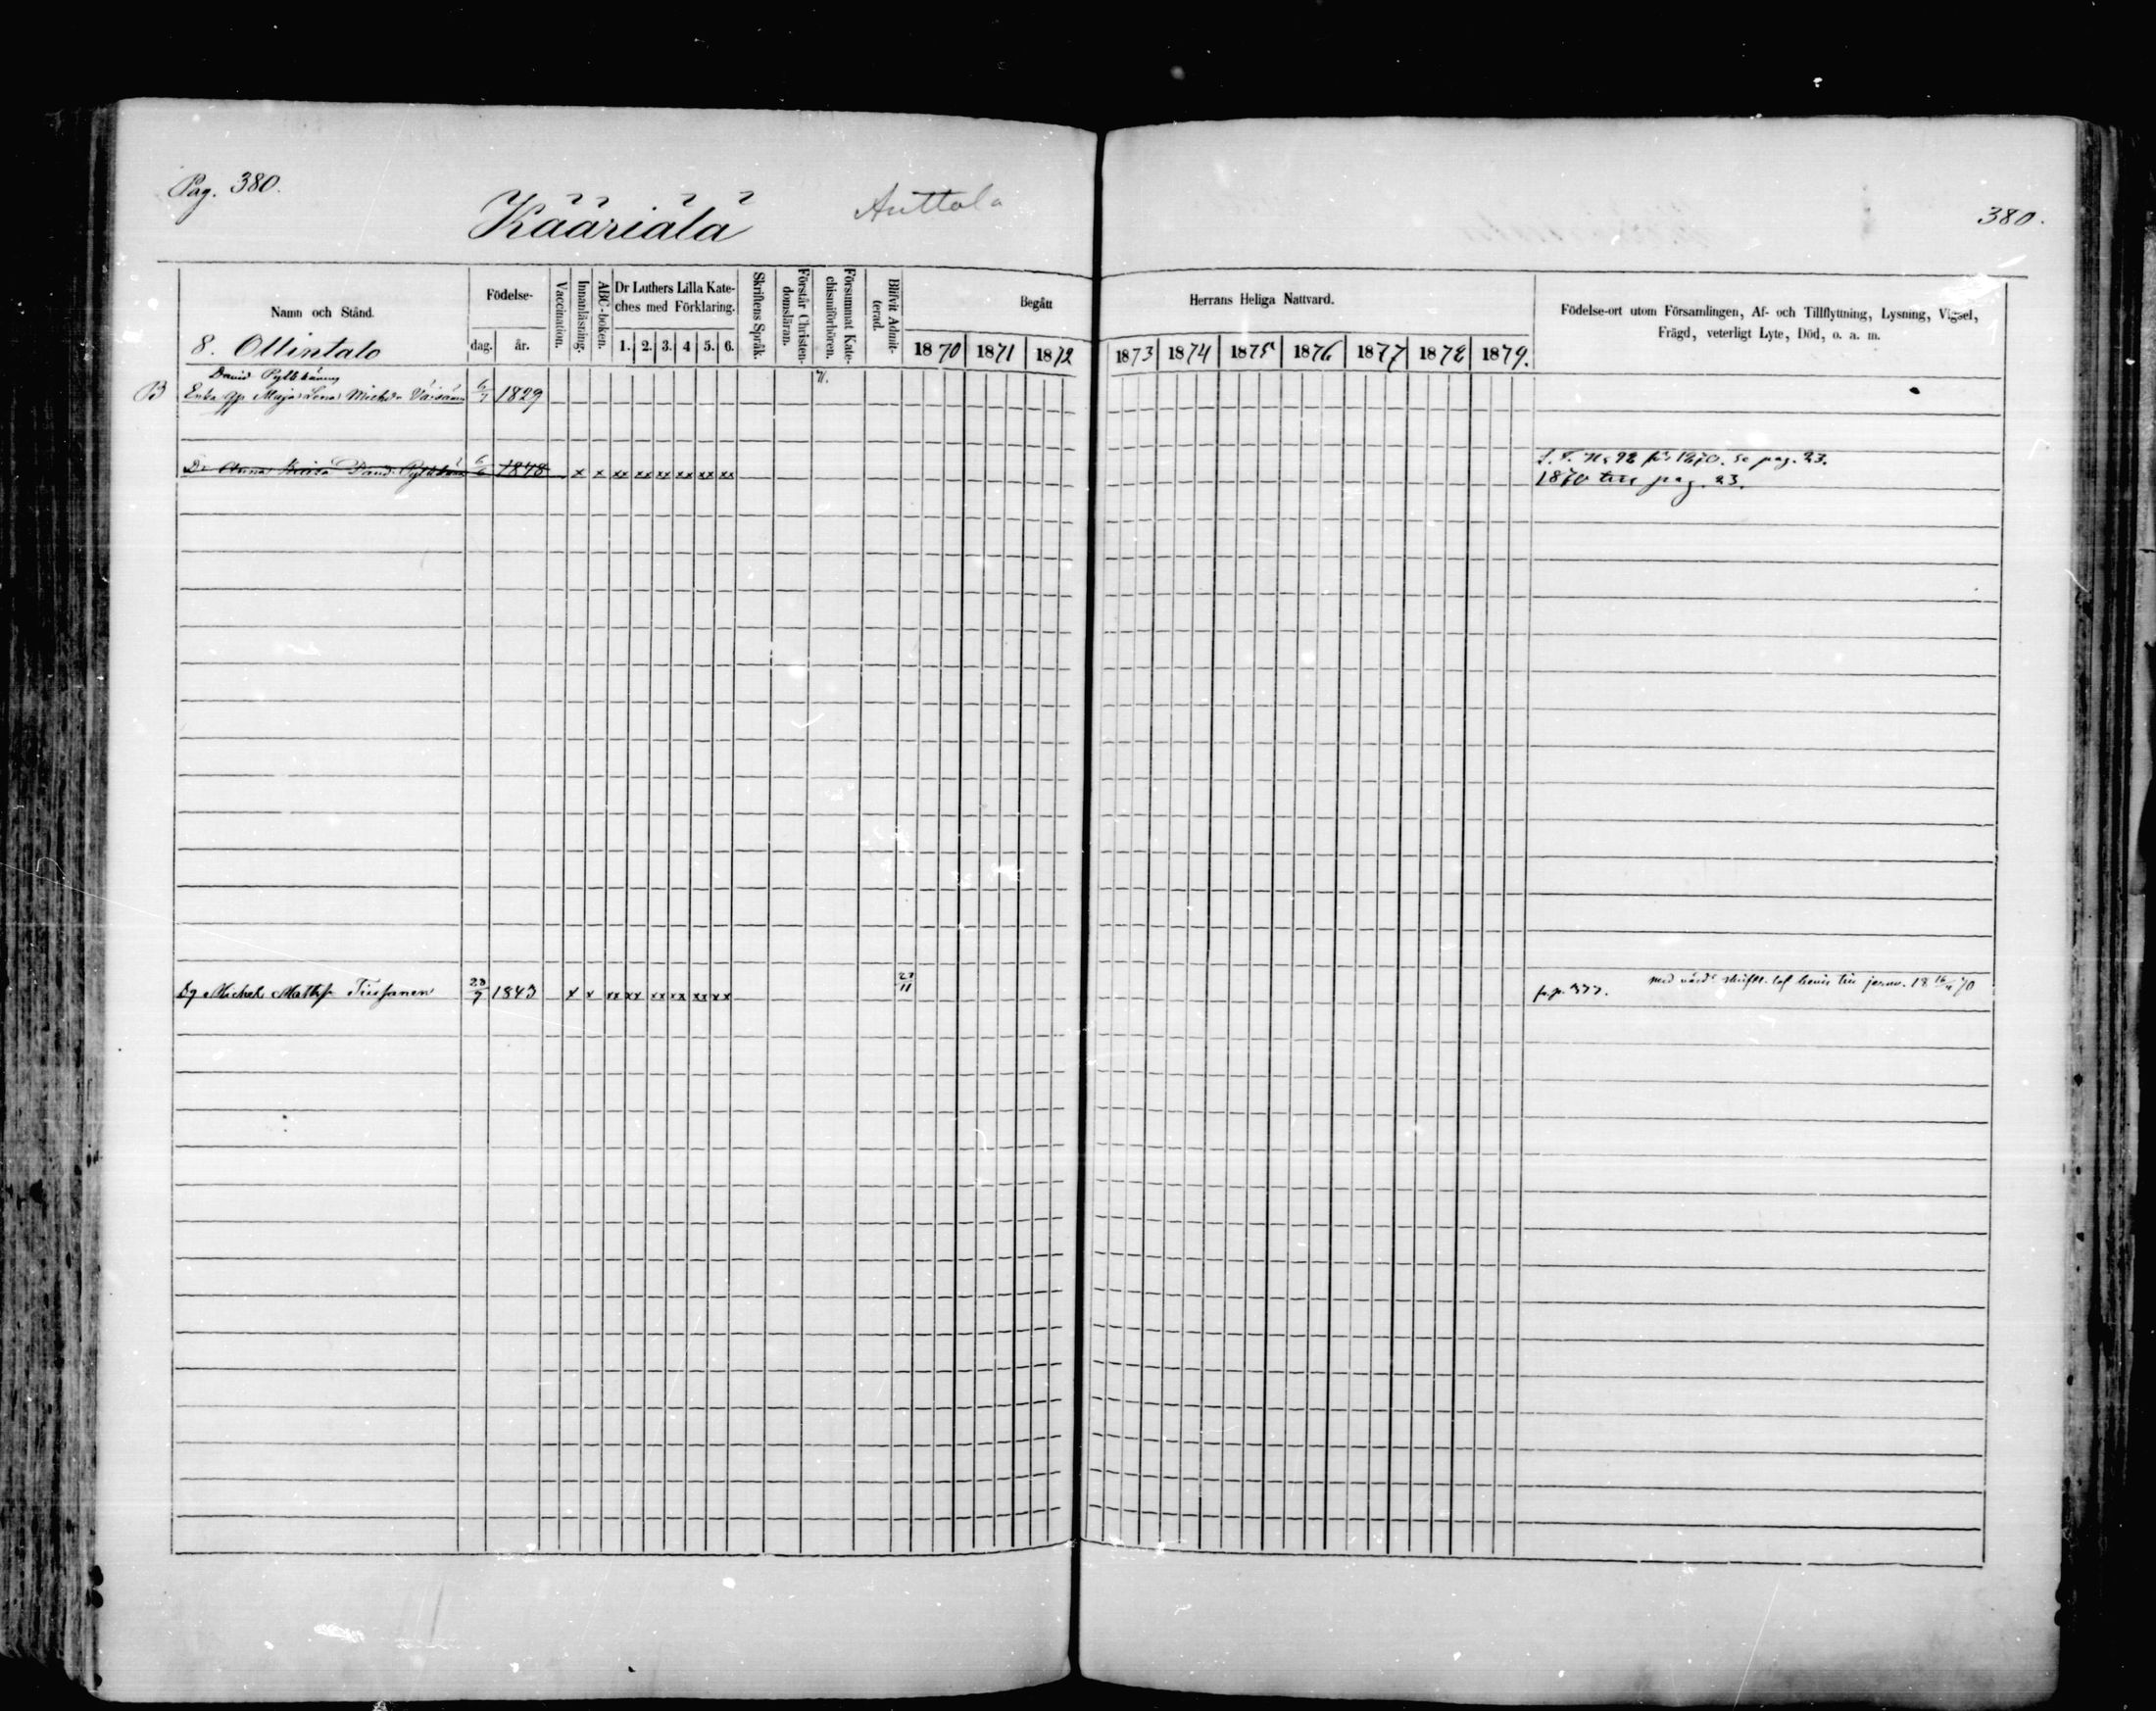 Pag. 380.
Kääriälä
Anttola
380.
Namn och Stånd.
Födelse-
dag.
år.
Vaccination.
Innanläsning.
ABC-boken.
Dr Luthers Lilla Kate-
ches med Förklaring.
1. 2. 3. 4 5. 6.
Skriftens Språk.
Förstår Christen-
domsläran.
Försummat Kate-
chismiförhören.
Blifvit Admit-
terad.
Begått
Herrans Heliga Nattvard.
1870 1871 1872 1873 1874 1875 1876 1877 1878 1879.
Födelse-ort utom Församlingen, Af- och Tillflyttning, Lysning, Vigsel,
Frägd, veterligt Lyte, Död, o. a. m.
8. Ollintalo
David Pylkkänens
B Enka Maja Lena Michelsdr Väisänen 6/7 1829
L. S. N:o 92 för 1870. Se pag. 23.
Dr Anna Davidsdr Pylkkänen 6/6 1848 x x xx xx xx xx xx xx 1870 till pag. 23.
Dg Michel Mattsson Tiusanen 23/7 1843 x x xx xx xx xx xx xx 27/11 fr. p. 377. med till 18 /70